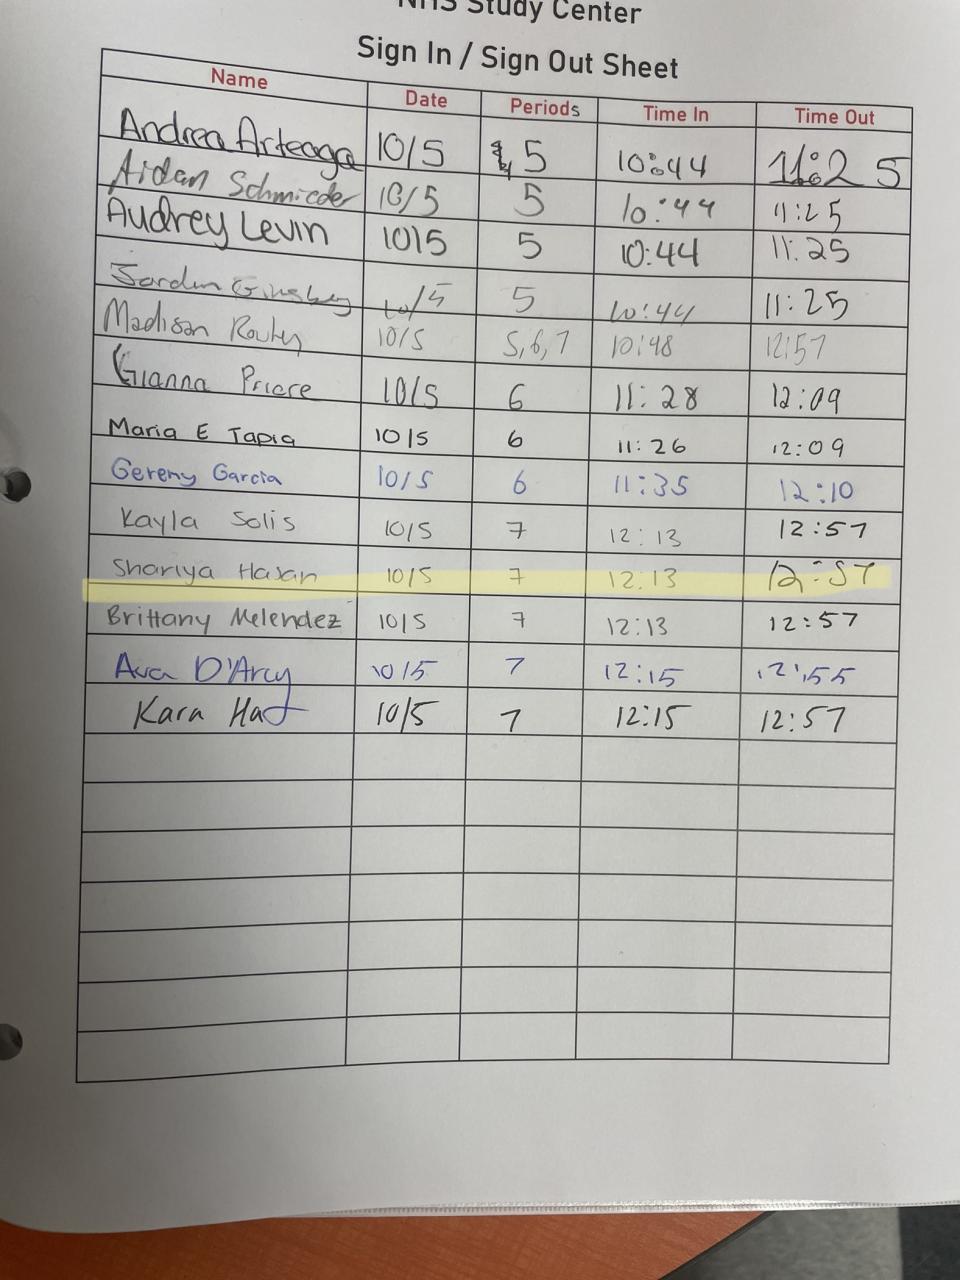 NHS Study Center
Sign In / Sign Out Sheet
Name Date Periods Time In Time Out
Andrea Arteaga 10/5 5 10:44 11:25
Aidan Schmieder 10/5 5 10:44 11:25
Audrey Levin 10/5 5 10:44 11:25
Jordan Ginsberg 10/5 5 10:44 11:25
Madison 10/5 5,6,7 10:48 12:57
Gianna Priore 10/5 6 11:28 12:09
Maria E Tapia 10/5 6 11:26 12:09
Gereny Garcia 10/5 6 11:35 12:10
Kayla Solis 10/5 7 12:13 12:57
Shariya Hasan 10/5 7 12:13 12:57
Brittany Melendez 10/5 7 12:13 12:57
Ava D'Arcy 10/5 7 12:15 12:55
Kara 10/5 7 12:15 12:57